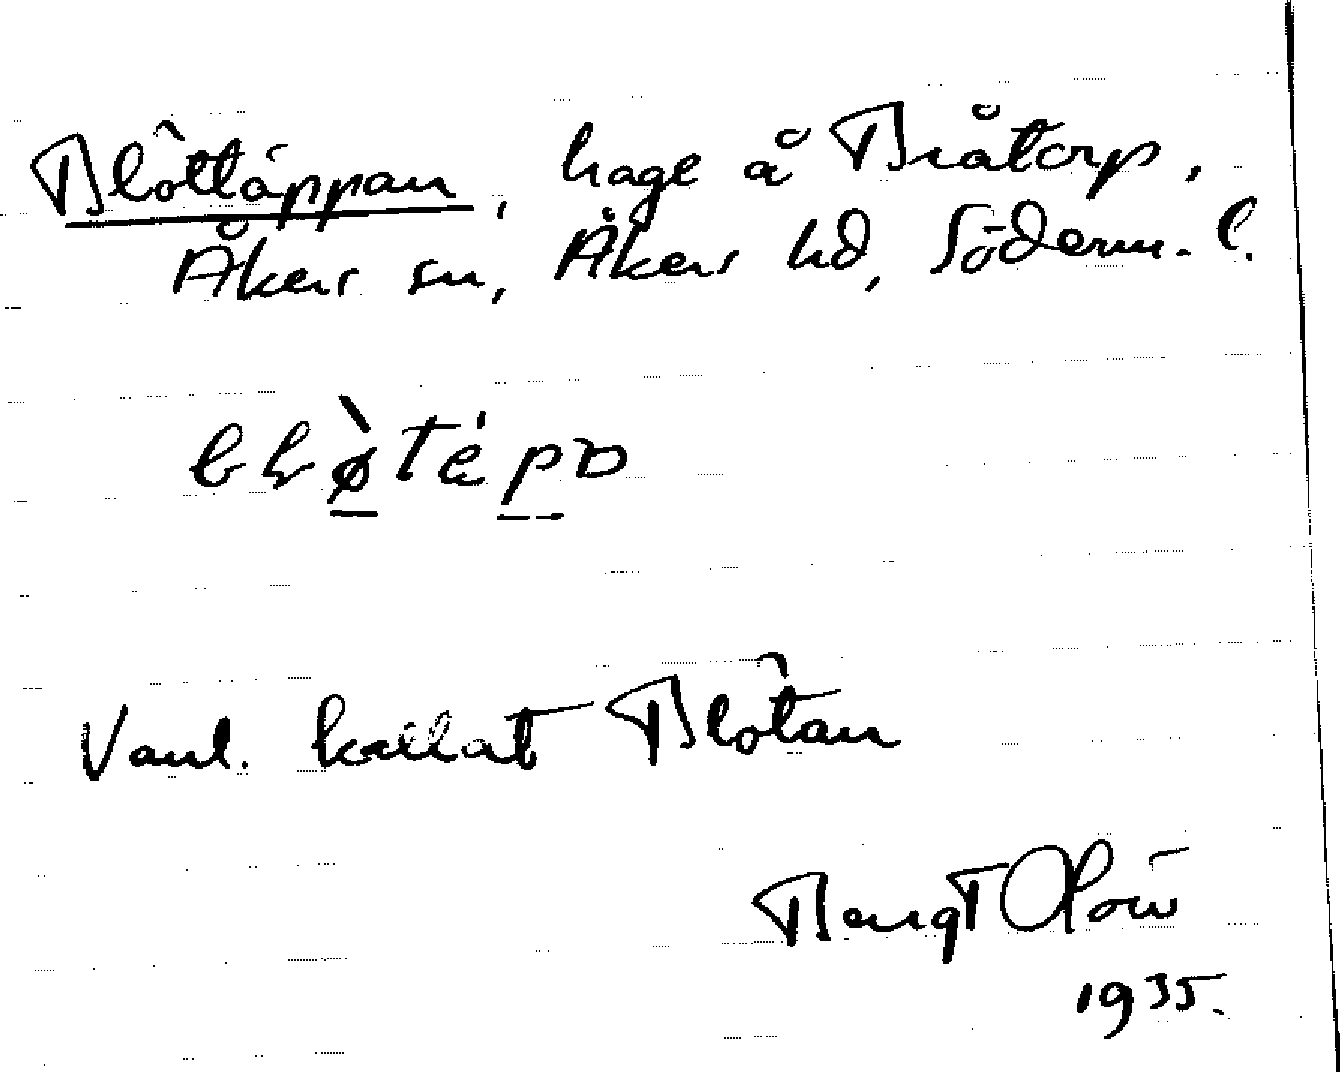 Blôttáppan, hage å Bråtorp,
Åkers sn, Åkers hd, Söderm. l.
Vanl. kallat Blôtan
Bengt Olów
1935.